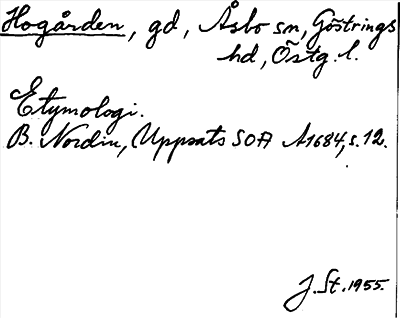 Hogården, gd, Åsbo sn, Göstrings
hd, Östg. l.
Etymologi.
B. Nordin, Uppsats SOA A1684, s. 12.
J. St. 1955.